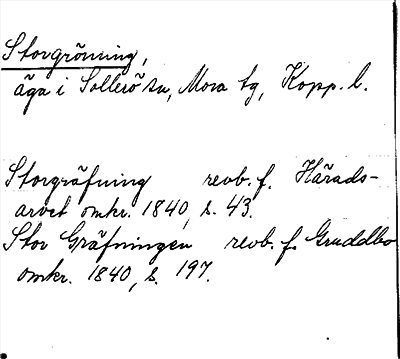 Storgröning,
äga i Sollerö sn, Mora tg, Kopp. l.
Storgräfning revb. f. Härads-
arvet omkr. 1840, s. 43.
Stor Gräfningen revb. f. Gruddbo
omkr. 1840, s. 197.